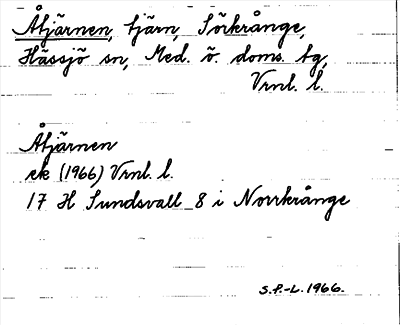 Åtjärnen, tjärn, Sörkrånge,
Hässjö sn, Med. ö. doms. tg,
Vrnl. l.
Åtjärnen
ek (1966) Vrnl. l.
17 H Sundsvall 8 i Norrkrånge
S.P.-L. 1966.